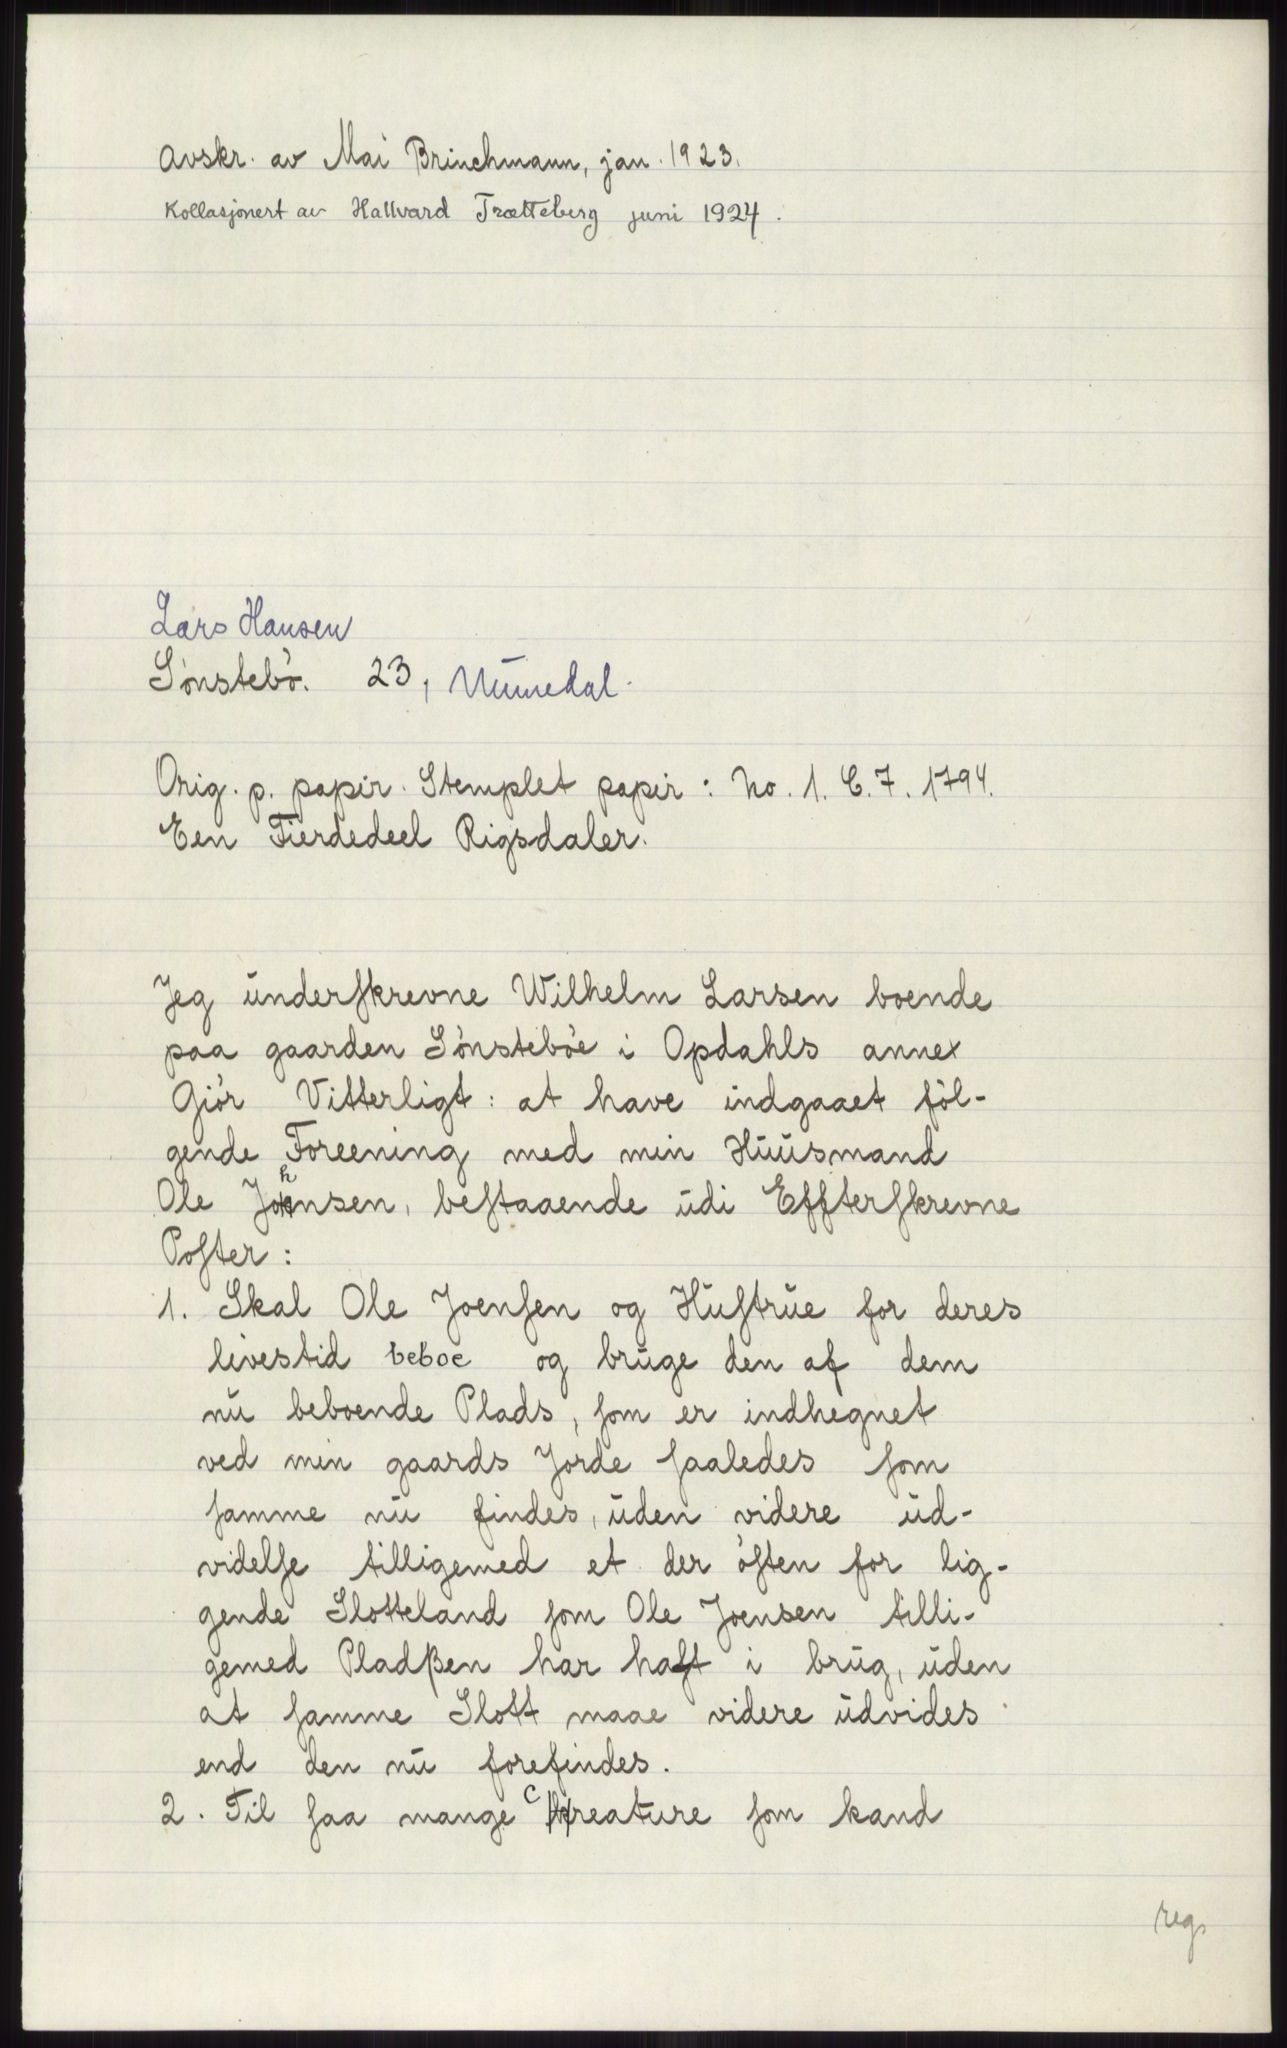 Avskr. av Mai Brinchmann, jan. 1923.
Kollasjonert av Hallvard Trætteberg juni 1924.
Lars Hansen
Sönstebö. 23, Numedal.
Orig. p. papir. Stemplet papir: No. 1. C. 7. 1794.
Een Fierdedeel Rigsdaler.
Jeg underſkrevne Wilhelm Larsen boende
paa gaarden Sönsteböe i Opdahls annex
Giör Vitterligt: at have indgaaet föl-
gende Foreening med min Huusmand
Ole Johnsen, beſtaaende udi Effterſkrevne
Poſter:
1. Skal Ole Joenſen og Huſtrue for deres
livestid beboe og bruge den af dem
nu beboende Plads, ſom er indhegnet
ved min gaards Jorde ſaaledes ſom
ſamme nu findes, uden videre ud-
videlſe tilligemed et der öſten for lig-
gende Slotteland ſom Ole Joensen tilli-
gemed Pladßen har haft i brug, uden
at ſamme Slott maae videre udvides
end den nu forefindes.
2. Til ſaa mange Creature ſom kand
reg.